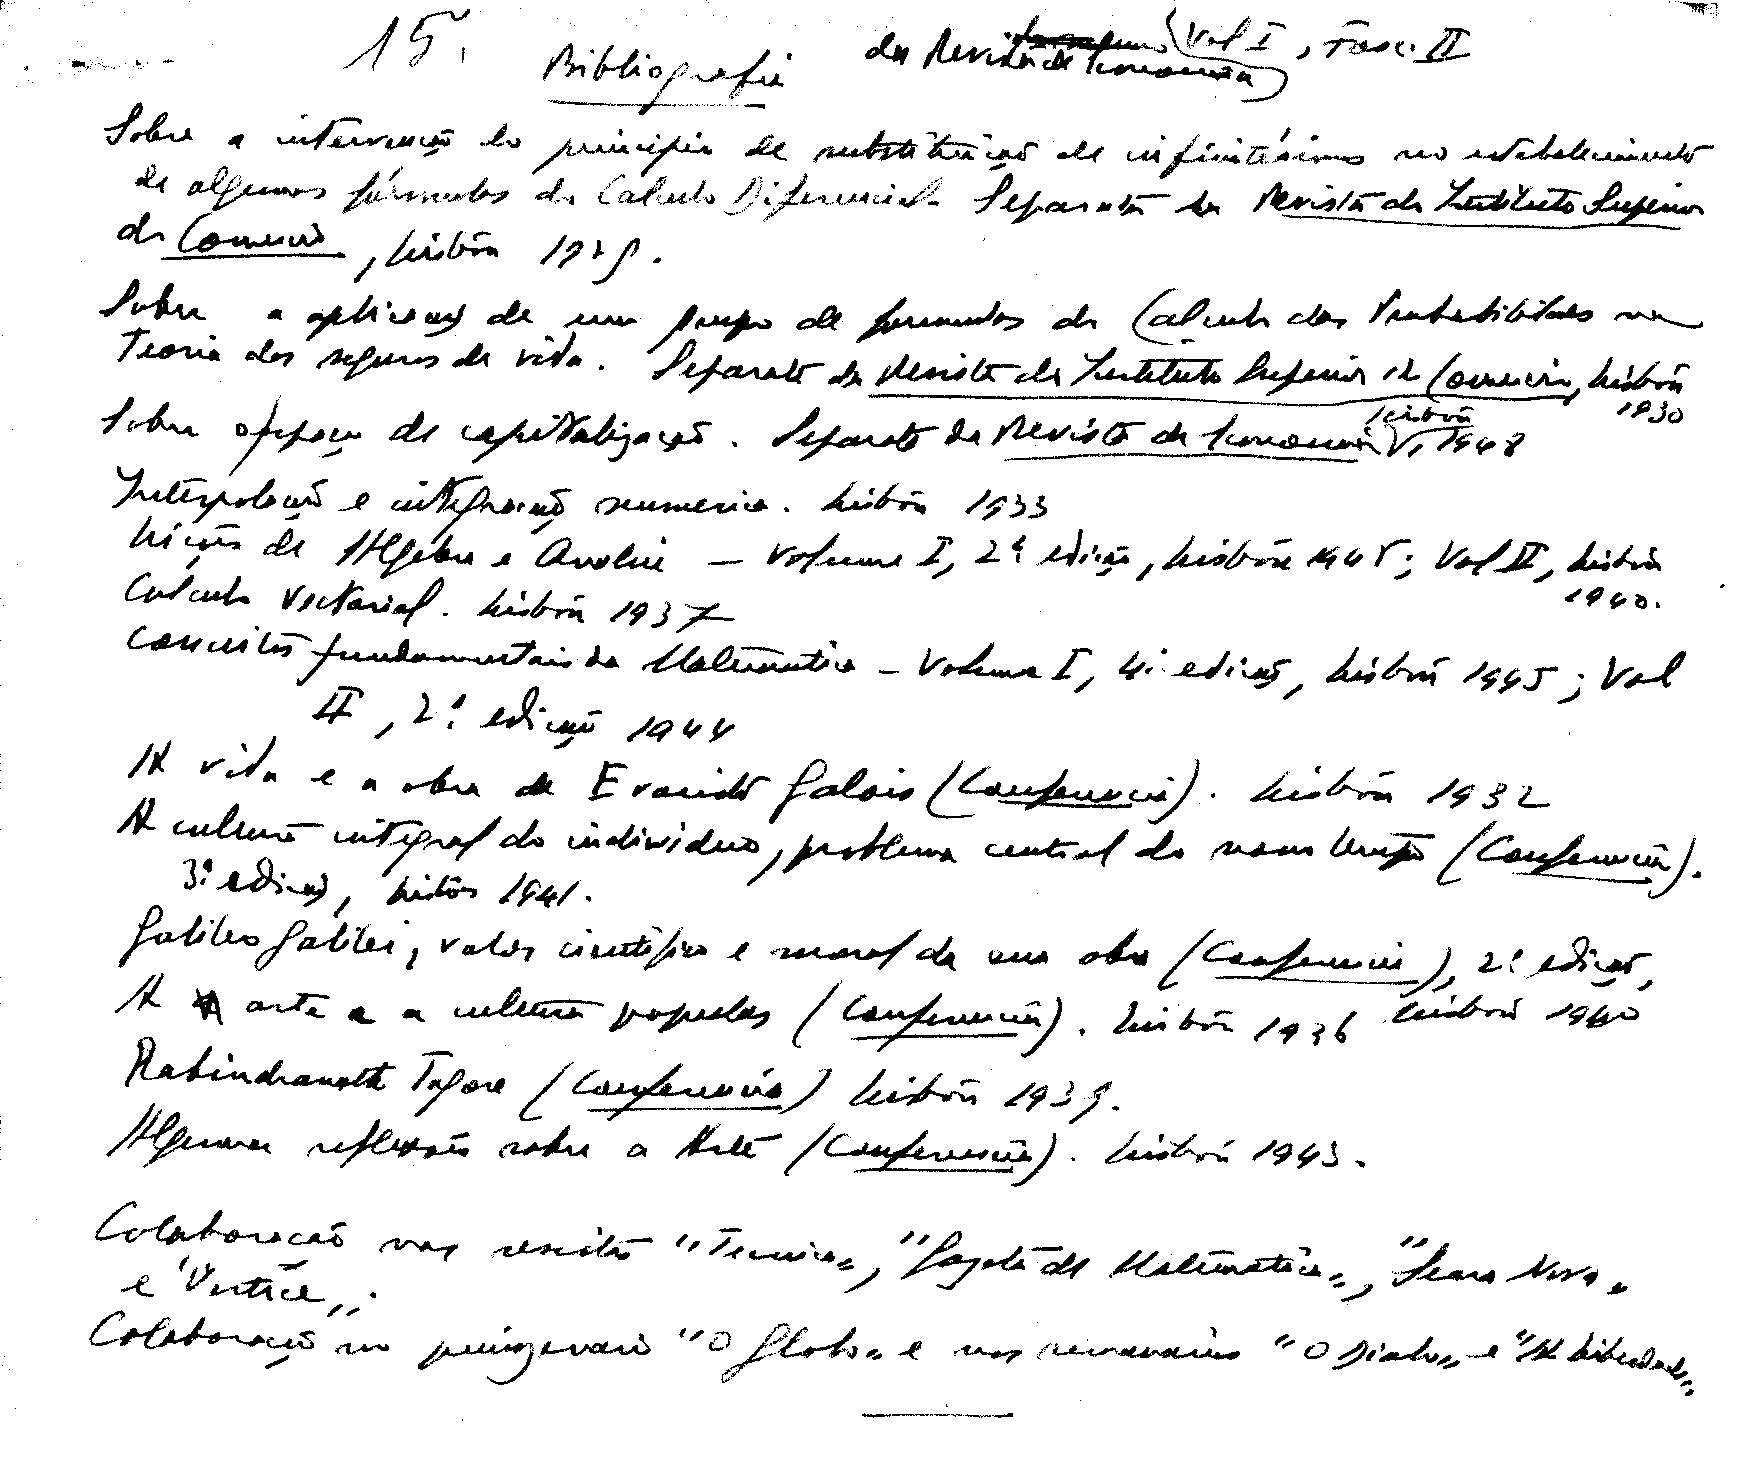 15.
Bibliografia da Revista de Economia Vol I, Fasc. II
Sobre a intervenção do princípio de substituição de infinitésimos no estabelecimento
de algumas fórmulas do Calculo Diferencial. Separata da Revista do Instituto Superior
do Comercio, Lisbôa 1929.
Sobre a aplicação de um grupo de formulas do Calculo das Probabilidades na
Teoria dos seguros de vida. Separata da Revista do Instituto Superior de Comercio, Lisbôa
1930
Sobre a força de capitalização. Separata da Revista de Economia, Lisbôa, 1948
Interpolação e integração numerica. Lisbôa 1933
Lições de Algebra e Analise – Volume I, 2ª edição, Lisbôa 1945; Vol II, Lisbôa
1940.
Calculo Vectorial. Lisbôa 1937
Conceitos fundamentais da Matematica – Volume I, 4ª edição, Lisbôa 1945; Vol
II, 2ª edição 1944
A vida e a obra de Evaristo Galois (Conferencia). Lisbôa 1932
A cultura integral do individuo, problema central do nosso tempo (Conferencia).
3ª edição, Lisbôa 1941.
Galileo Galilei, valor cientifico e moral da sua obra (Conferencia), 2ª edição,
Lisbôa 1940
A arte e a cultura popular (Conferencia). Lisbôa 1936
Rabindranath Tagore (Conferencia) Lisbôa 1939.
Algumas reflexões sobre a Arte (Conferencia). Lisbôa 1943.
Colaboração nas revistas "Tecnica", "Gazeta de Matematica", "Seara Nova"
e "Vertice".
Colaboração no quinzenario "O Globo" e nos semanarios "O Diabo" e "A Liberdade"